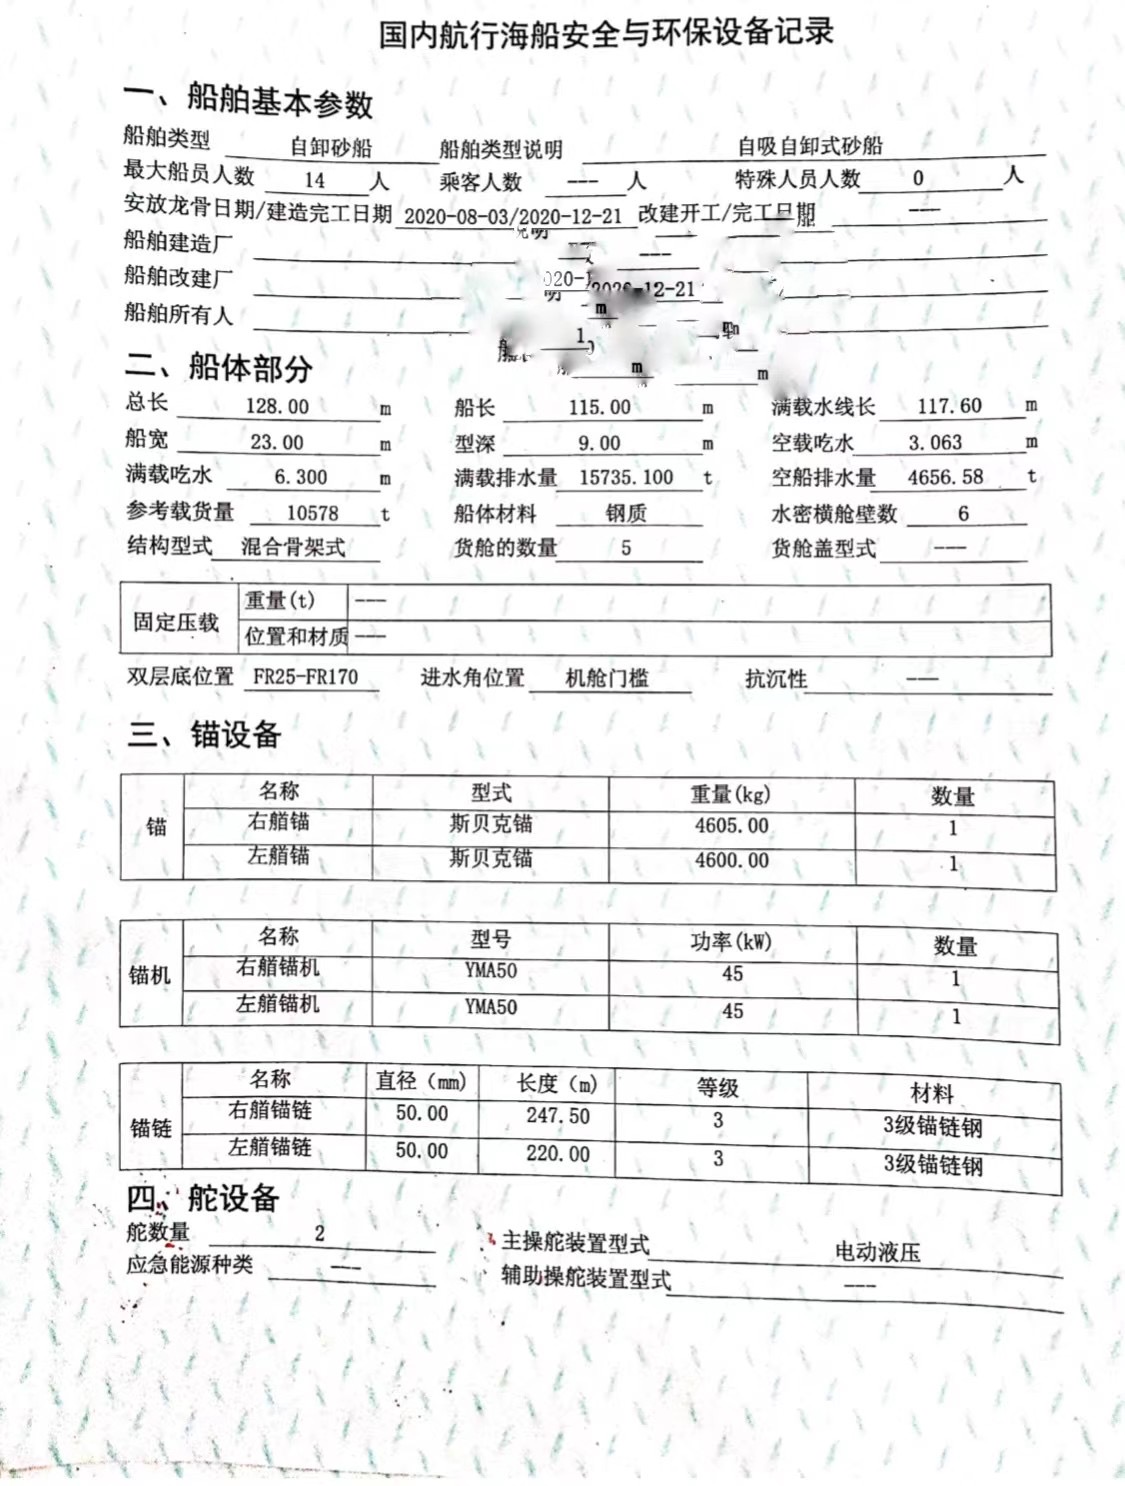 国内航行海船安全与环保设备记录
一、船舶基本参数
船舶类型 自卸砂船 船舶类型说明 自吸自卸式砂船
最大船员人数 14 人 乘客人数 --- 人 特殊人员人数 0 人
安放龙骨日期/建造完工日期 2020-08-03/2020-12-21 改建开工/完工日期 ---
船舶建造厂
船舶改建厂
船舶所有人
二、船体部分
总长 128.00 m 船长 115.00 m 满载水线长 117.60 m
船宽 23.00 m 型深 9.00 m 空载吃水 3.063 m
满载吃水 6.300 m 满载排水量 15735.100 t 空船排水量 4656.58 t
参考载货量 10578 t 船体材料 钢质 水密横舱壁数 6
结构型式 混合骨架式 货舱的数量 5 货舱盖型式 ---
固定压载 重量(t) ---
位置和材质 ---
双层底位置 FR25-FR170 进水角位置 机舱门槛 抗沉性 ---
三、锚设备
锚 名称 型式 重量(kg) 数量
右艏锚 斯贝克锚 4605.00 1
左艏锚 斯贝克锚 4600.00 1
锚机 名称 型号 功率(kW) 数量
右艏锚机 YMA50 45 1
左艏锚机 YMA50 45 1
锚链 名称 直径（mm) 长度（m) 等级 材料
右艏锚链 50.00 247.50 3 3级锚链钢
左艏锚链 50.00 220.00 3 3级锚链钢
四、舵设备
舵数量 2 主操舵装置型式 电动液压
应急能源种类 --- 辅助操舵装置型式 ---